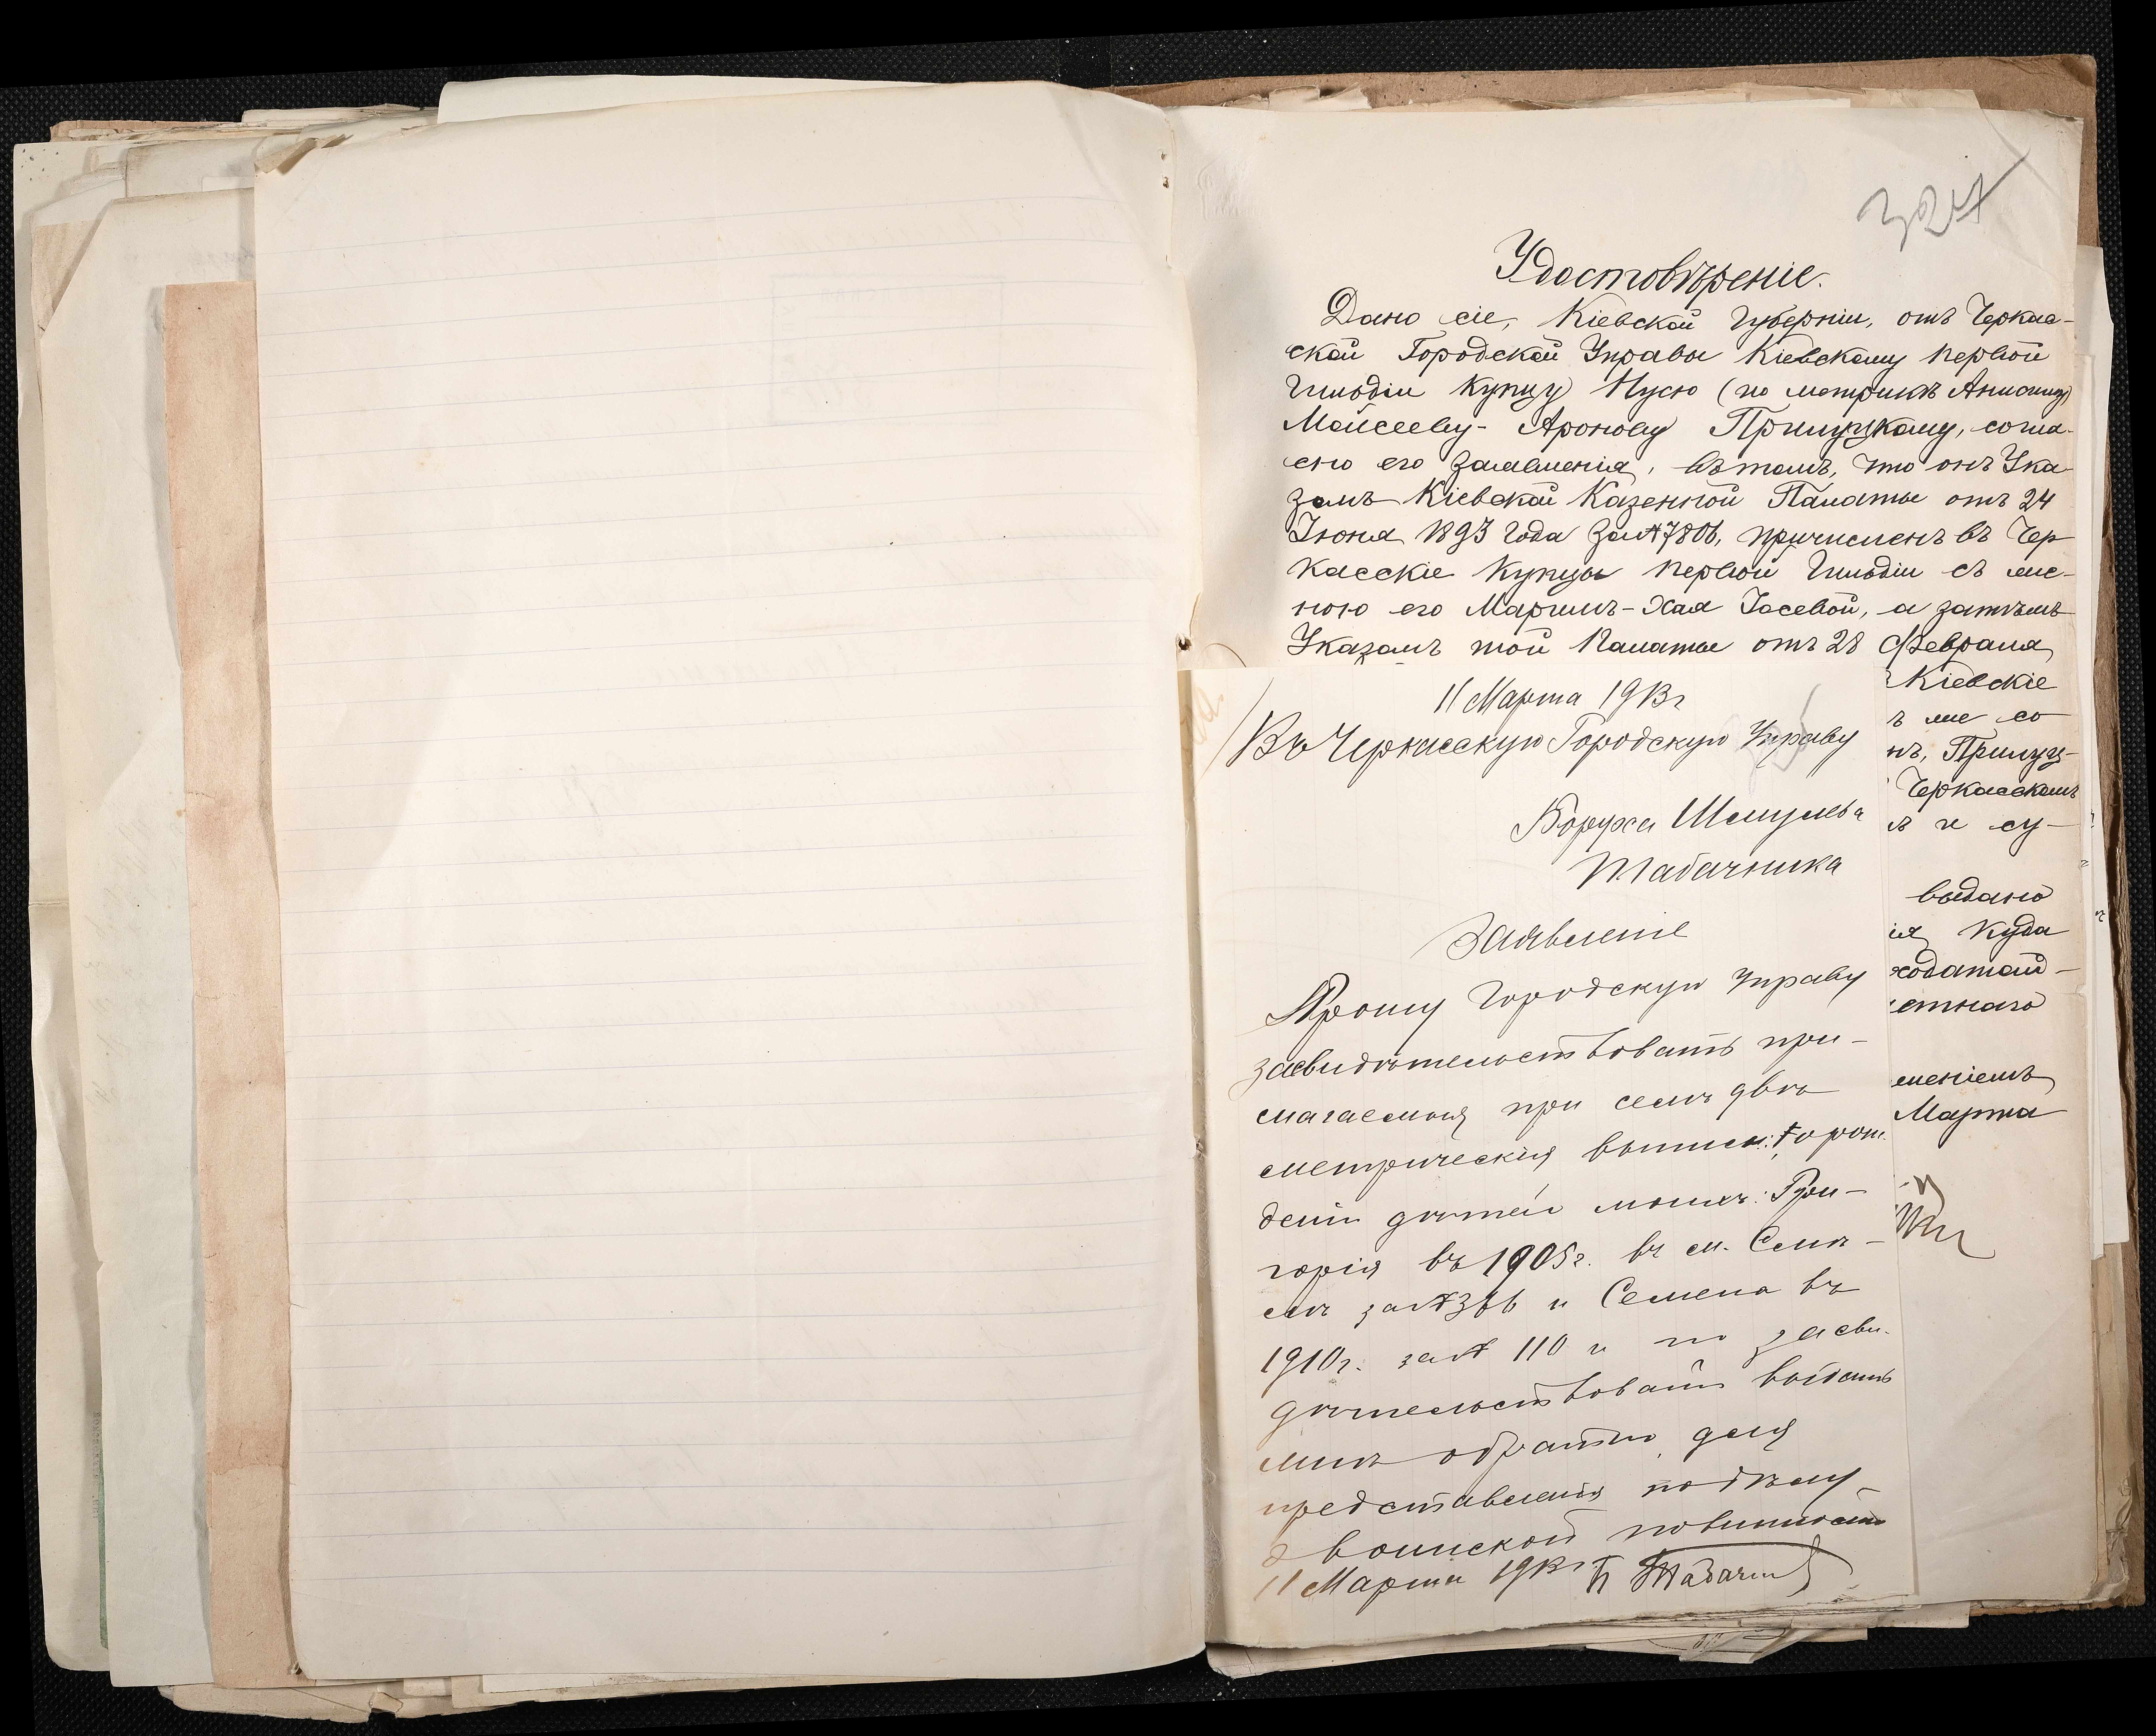 327
Удостовѣреніе.
Дано сіе, Кіевской Губерніи, отъ Черкас-
ской Городской Управы Кіевскому первой
Гильдіи Купцу Нусю (по метрикѣ
Мойсееву-Аронову Прилуцкому, согла-
сно его заявленія, въ томъ, что онъ Ука-
зомъ Кіевской Казенной Палаты отъ 24
Іюня 1893 года за № 7806, причисленъ въ Чер-
касскіе Купцы первой Гильдіи съ же-
ною его Хая Іосевой, а затѣмъ
Указомъ той Палаты отъ 28 Февраля
Кіевскіе
ъ же со
нъ, Прилуц-
Черкасскомъ
и су-
выдано
ія, куда
ходатай-
етнаго
женіемъ
Марта
11 Марта 1913 г
Въ Черкасскую Городскую Управу
Боруха Шмулева
Табачника
Заявленіе
Прошу Городскую Управу
засвидѣтельствовать при-
лагаемыя при семъ двѣ
метрическія выписи: о рож-
деніи дѣтей моихъ: Гри-
горія въ 1905 г. въ м. Смѣ-
лѣ за № и Семена въ
1910 г. за № 110 и по засви-
дѣтельствованіи выдать
мнѣ обратно для
представленія по
воинской повинности
11 Марта 1913 г Б Табачник